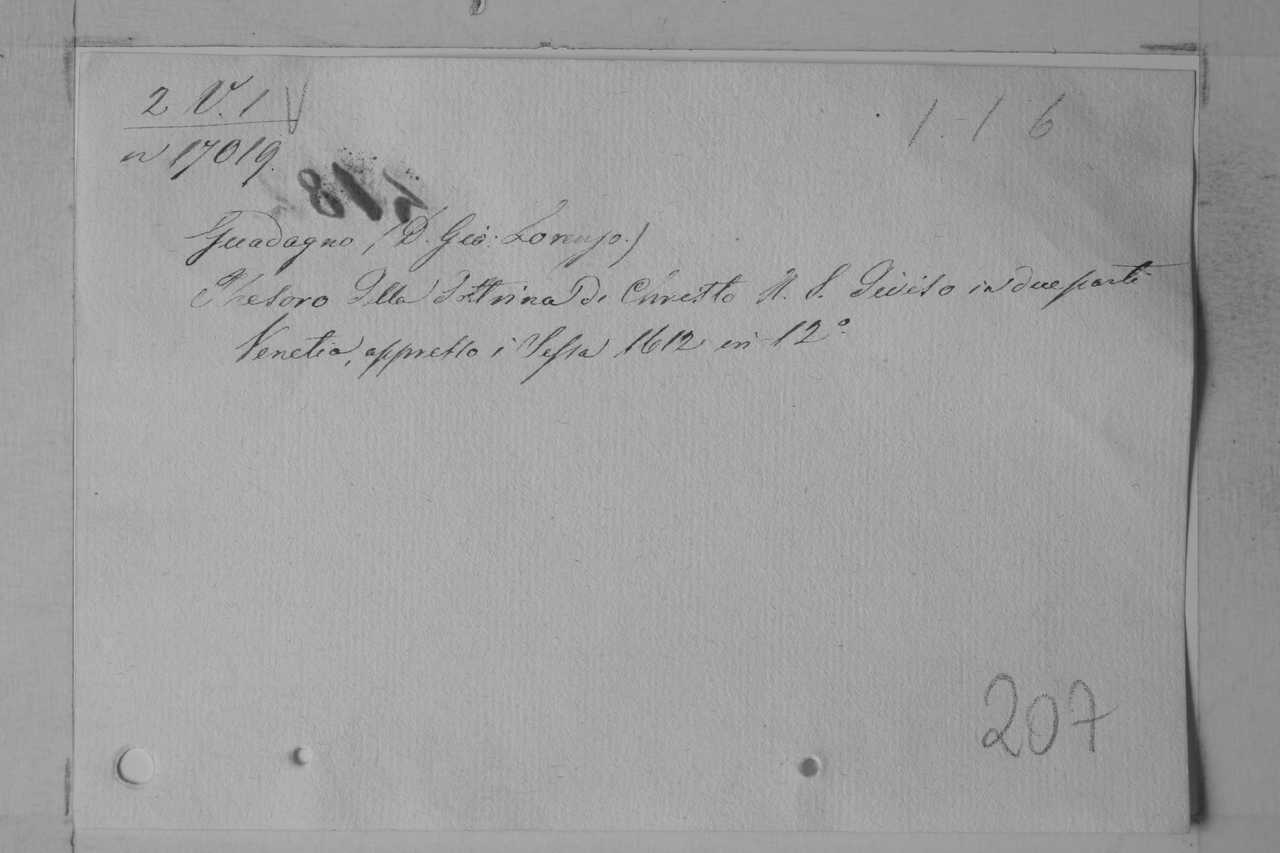 2 V. 1 V
1-1 6
n 17019.
418
Guadagno (D. Gio: Lorenzo.)
Thesoro della Dottrina di Christo N. S. diviso in due parti
Venetia, appresso i Sessa 1612 in 12º.
207